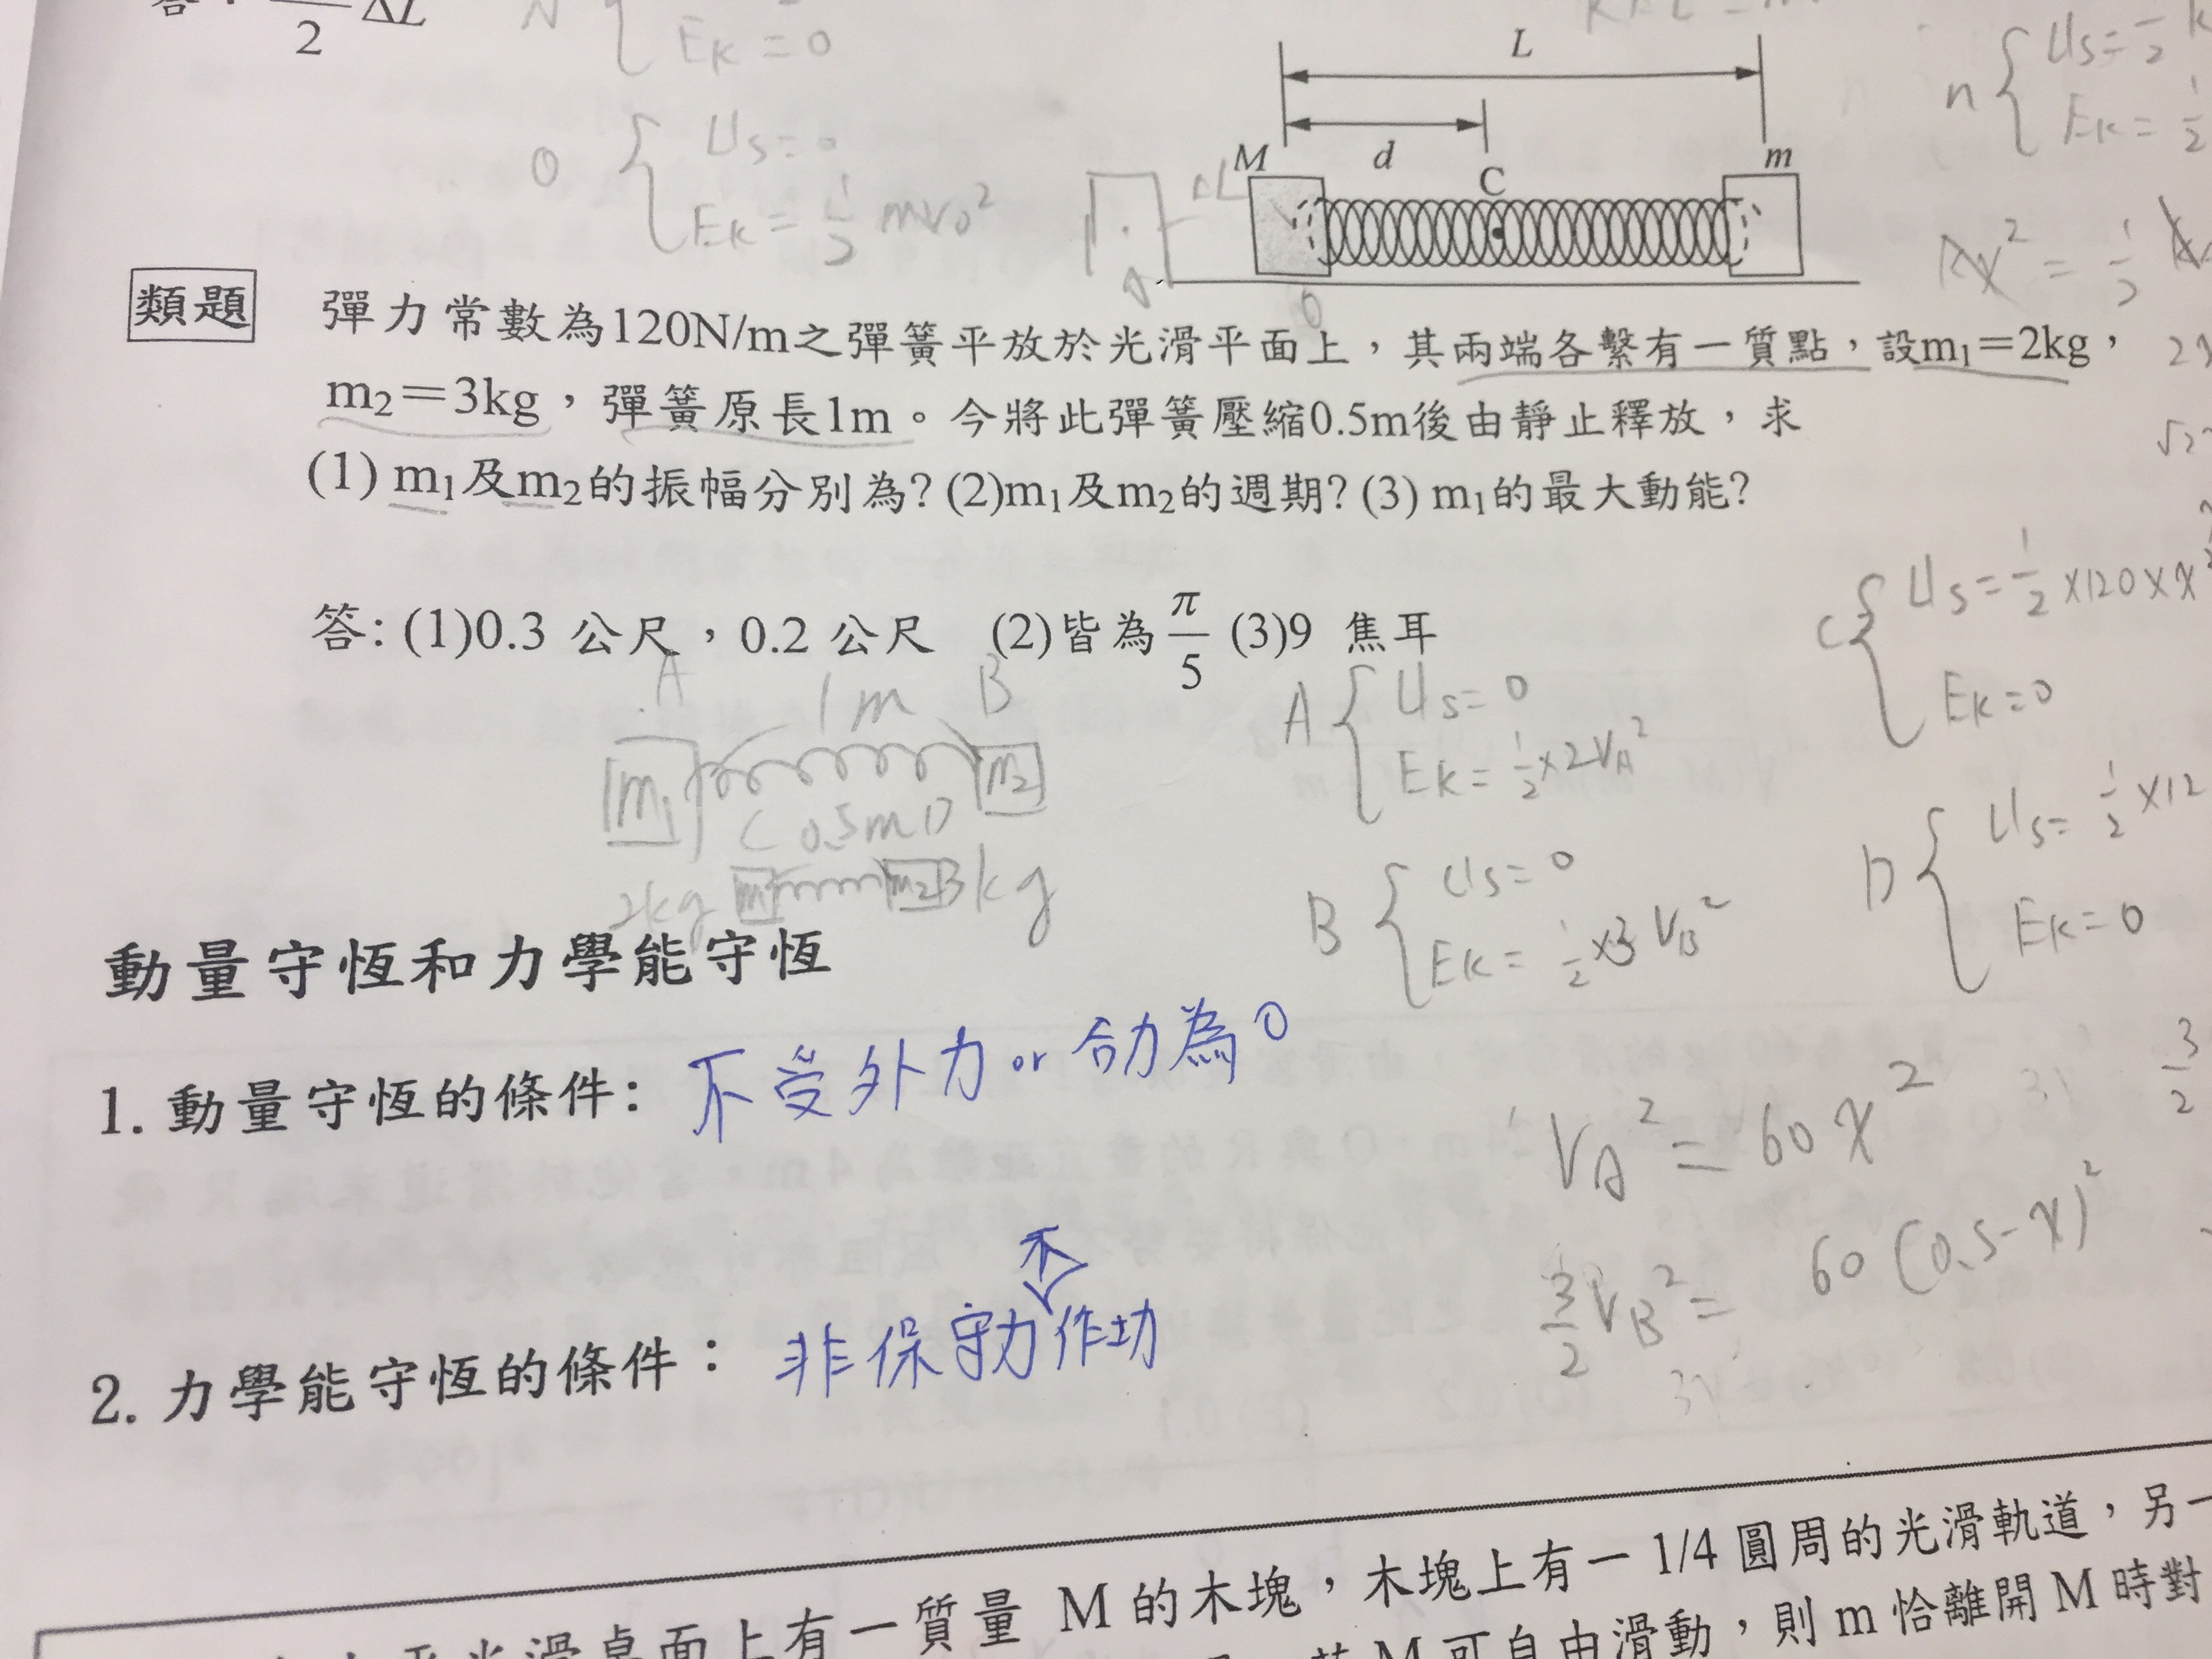 2 ΔL
N { EK = 0
L
d
M
C
m
0 { Us = 0
EK = 1/2 mv0²
ΔL
A
0
n { Us = 1/2 k
EK = 1/2
類題 彈力常數為120N/m之彈簧平放於光滑平面上，其兩端各繫有一質點，設m₁＝2kg，
m₂＝3kg，彈簧原長1m。今將此彈簧壓縮0.5m後由靜止釋放，求
(1) m₁及m₂的振幅分別為? (2)m₁及m₂的週期? (3) m₁的最大動能?
答: (1)0.3 公尺，0.2 公尺 (2)皆為π/5 (3)9 焦耳
A 1m B
m₁ m₂
C 0.5m D
2kg m₁ m₂ 3kg
A { Us = 0
EK = 1/2 ×2VA²
B { Us = 0
EK = 1/2 ×3 VB²
C { Us = 1/2 ×120×x²
EK = 0
D { Us = 1/2 ×12
EK = 0
動量守恆和力學能守恆
1. 動量守恆的條件: 不受外力 or 合力為0
VA² = 60x²
3/2
3/2 VB² = 60(0.5-x)²
2. 力學能守恆的條件： 非保守力不作功
平光滑桌面上有一質量 M 的木塊，木塊上有一 1/4 圓周的光滑軌道，另一
M 可自由滑動，則 m 恰離開 M 時對